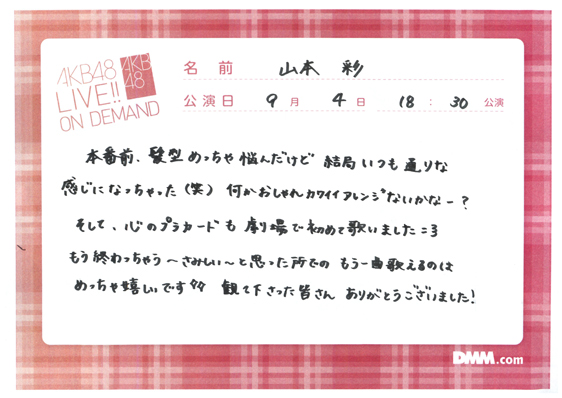 AKB48
LIVE!!
ON DEMAND
AKB
48
名前 山本 彩
公演日 9月 4日 18:30 公演
本番前、髪型めっちゃ悩んだけど 結局いつも通りな
感じになっちゃった(笑) 何かおしゃれカワイイアレンジないかなー?
そして、心のプラカードも 劇場で初めて歌いました=3
もう終わっちゃう〜さみしい〜と思った所での もう一曲歌えるのは
めっちゃ嬉しいです 観て下さった皆さん ありがとうございました!
DMM.com